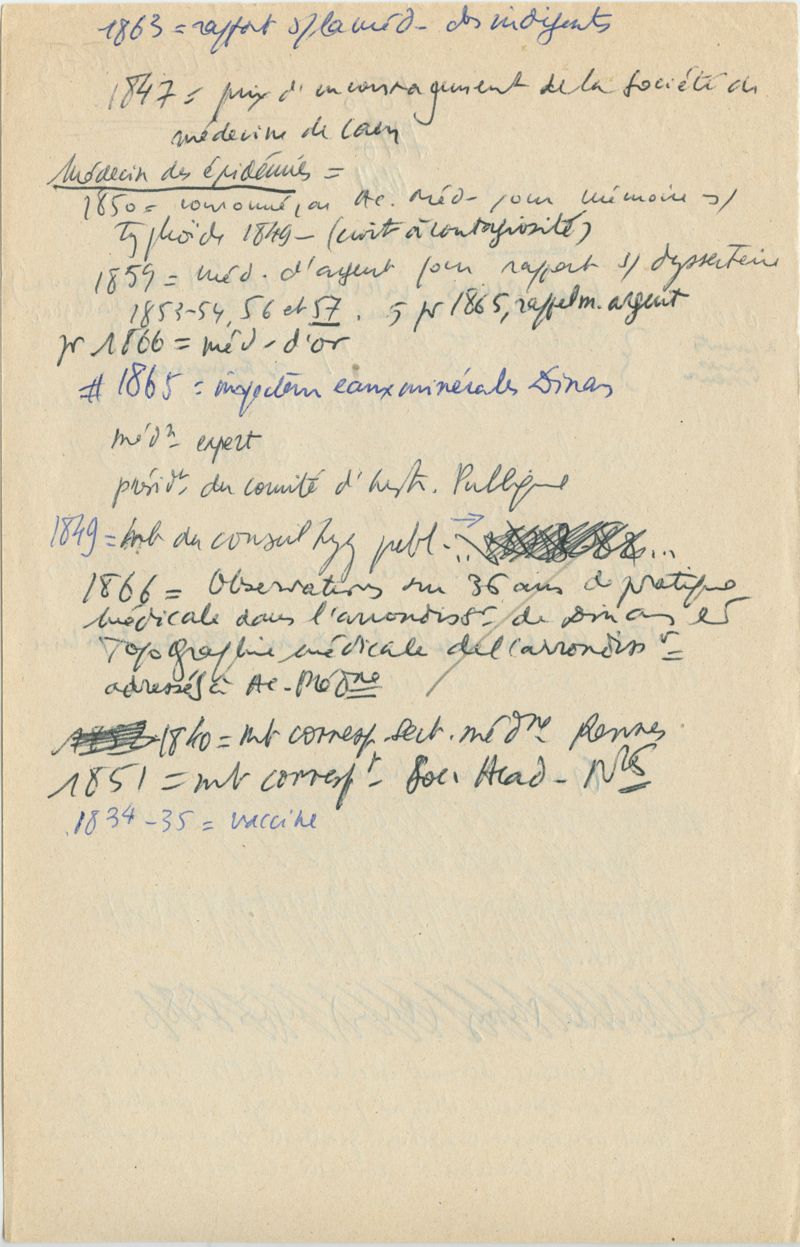 1863 = rapport s/ la méd- des indigents
1847 = prix d'encouragement de la Société de
médecine de Caen
Médecin des épidémies =
1850 = couronné par Ac. Méd- pour mémoire s/
typhoïde 1849 - (croit à contagiosité)
1859 = méd. d'argent pour rapport s/ dyssenterie
1853-54, 56 et 57. 5 pr 1865, rappel m. argent
pr 1866 = méd - d'or
# 1865 = inspecteur eaux minérales Dinan
médn expert
présidt du comité d'Inst. Publique
1849 = mb du conseil hyg publ-
1866 = Observations sur 36 ans de pratique
médicale dans l'arrondisst de Dinan et
Topographie médicale de l'arrondisst =
adressés à Ac-Médne
1840 = mb corresp. sect. médne Rennes
1851 = mb correspt Soc. Acad- Ntes
1834-35 = vaccine